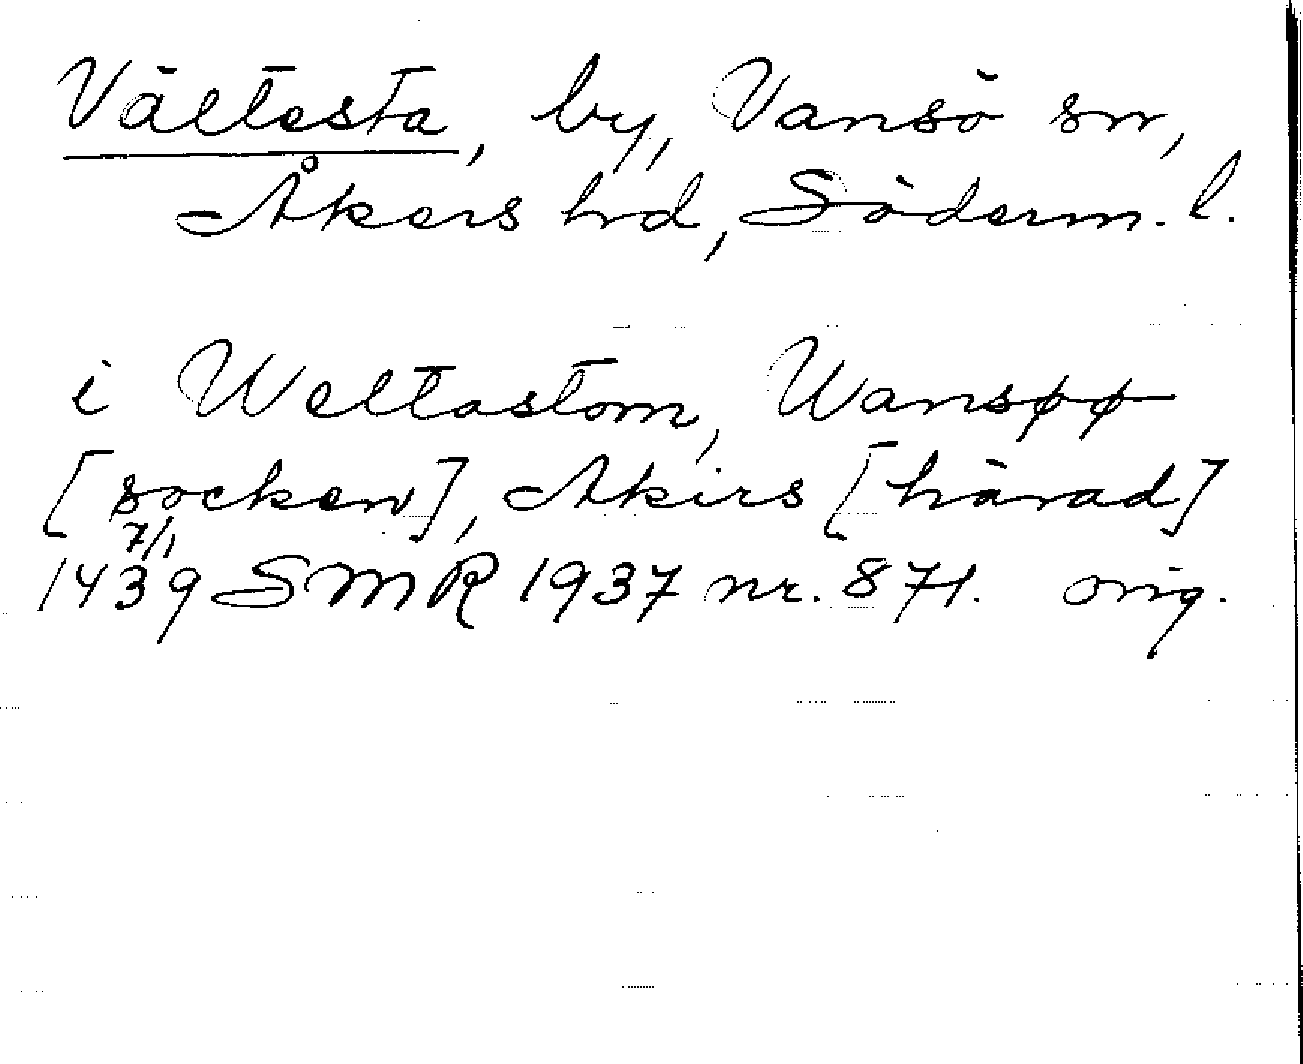 Vältesta, by, Vansö sn,
Åkers hd, Söderm. l.
i Weltastom, Wansøø
[socken], Akirs [härad]
7/1
1439 SMR 1937 nr. 871. orig.